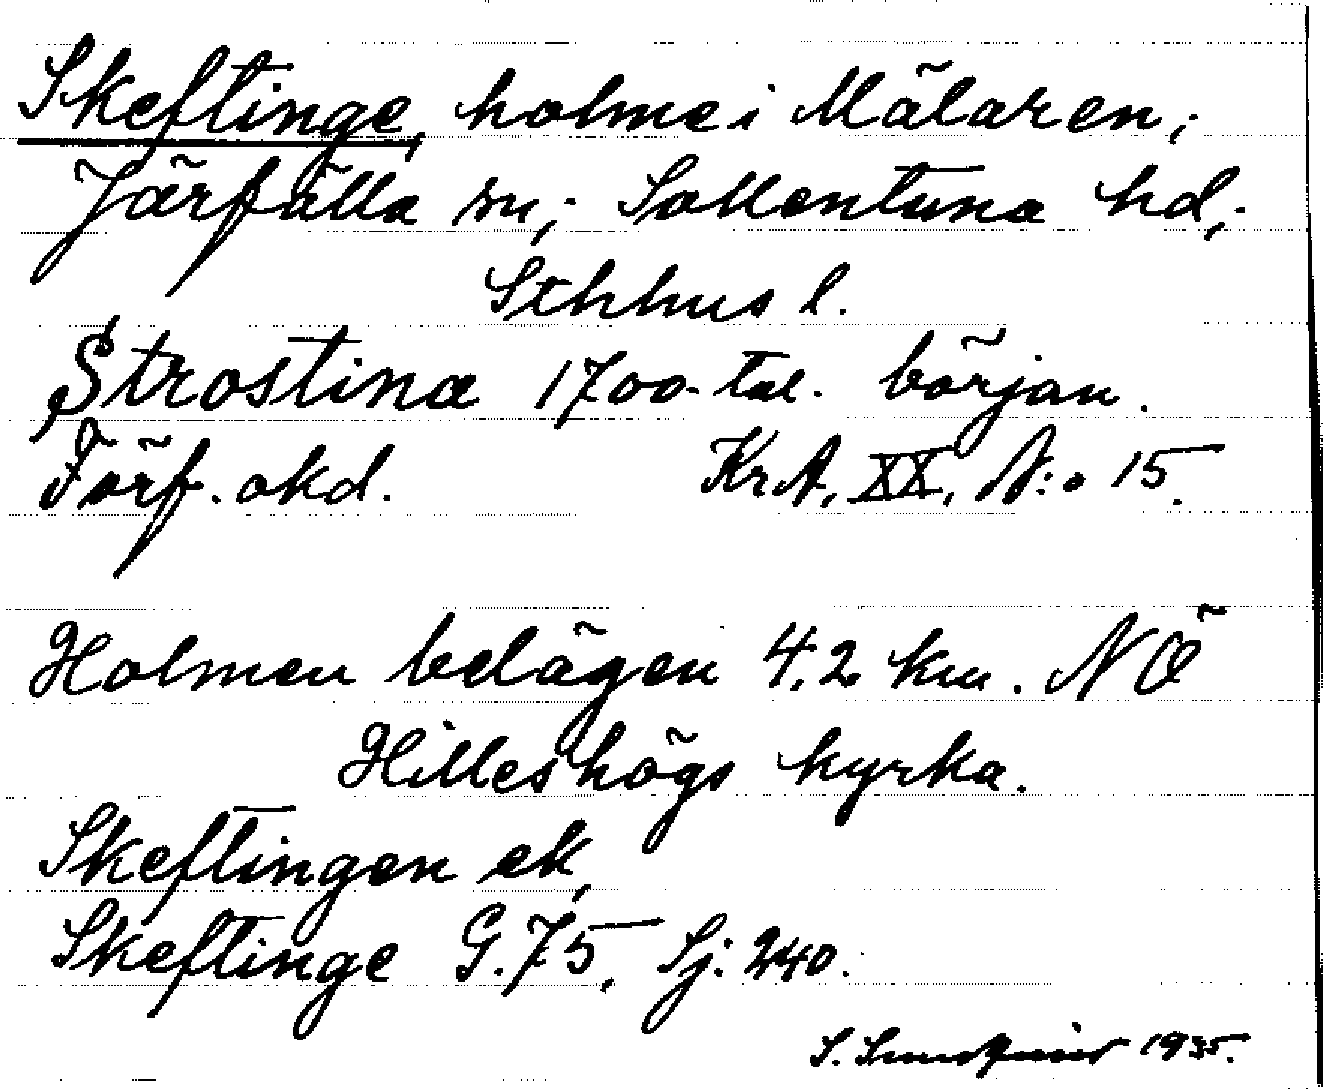 Skeftinge, holme i Mälaren;
Järfälla sn; Sollentuna hd;
Sthlms l.
Strostina 1700-tal. början.
Förf. okd. KrA, XX, N:o 15.
Holmen belägen 4,2 km. NÖ
Hilleshögs kyrka.
Skeftingen ek,
Skeftinge G. 75, Sj: 240.
S. Sundqvist 1935.